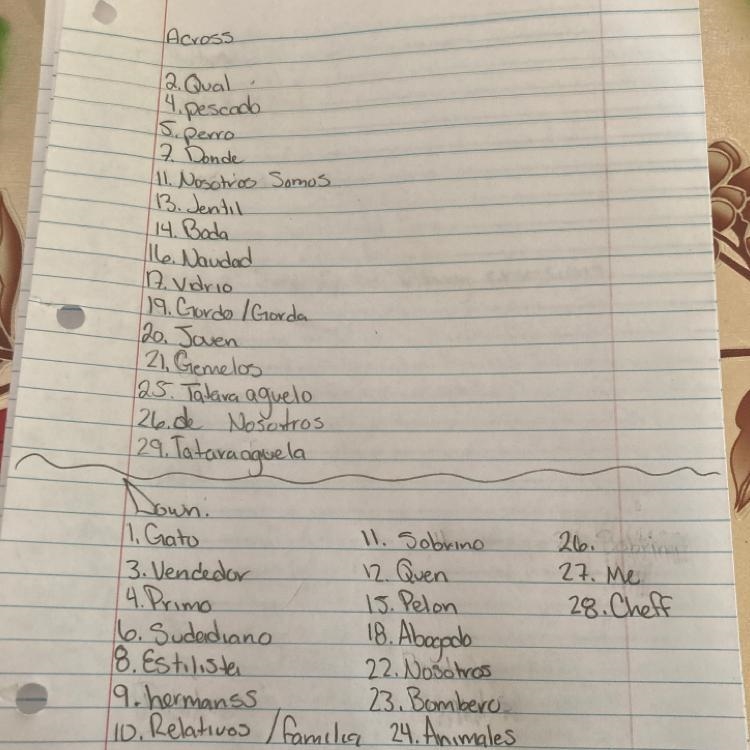 Across
2. Qual
4. pescado
5. perro
7. Donde
11. Nosotrios Somos
13. Jentil
14. Boda
16. Navdad
17. Vidrio
19. Gordo / Gorda
20. Joven
21. Gemelos
25. Tatara aguelo
26. de Nosotros
29. Tataraaguela
Down.
1. Gato
3. Vendedor
4. Primo
6.
8. Estilista
9. hermanss
10. Relativos / familia
11. Sobrino
12. Quen
15. Pelon
18. Abogado
22. Nosotros
23. Bombero
24. Animales
26.
27. Me
28. Cheff